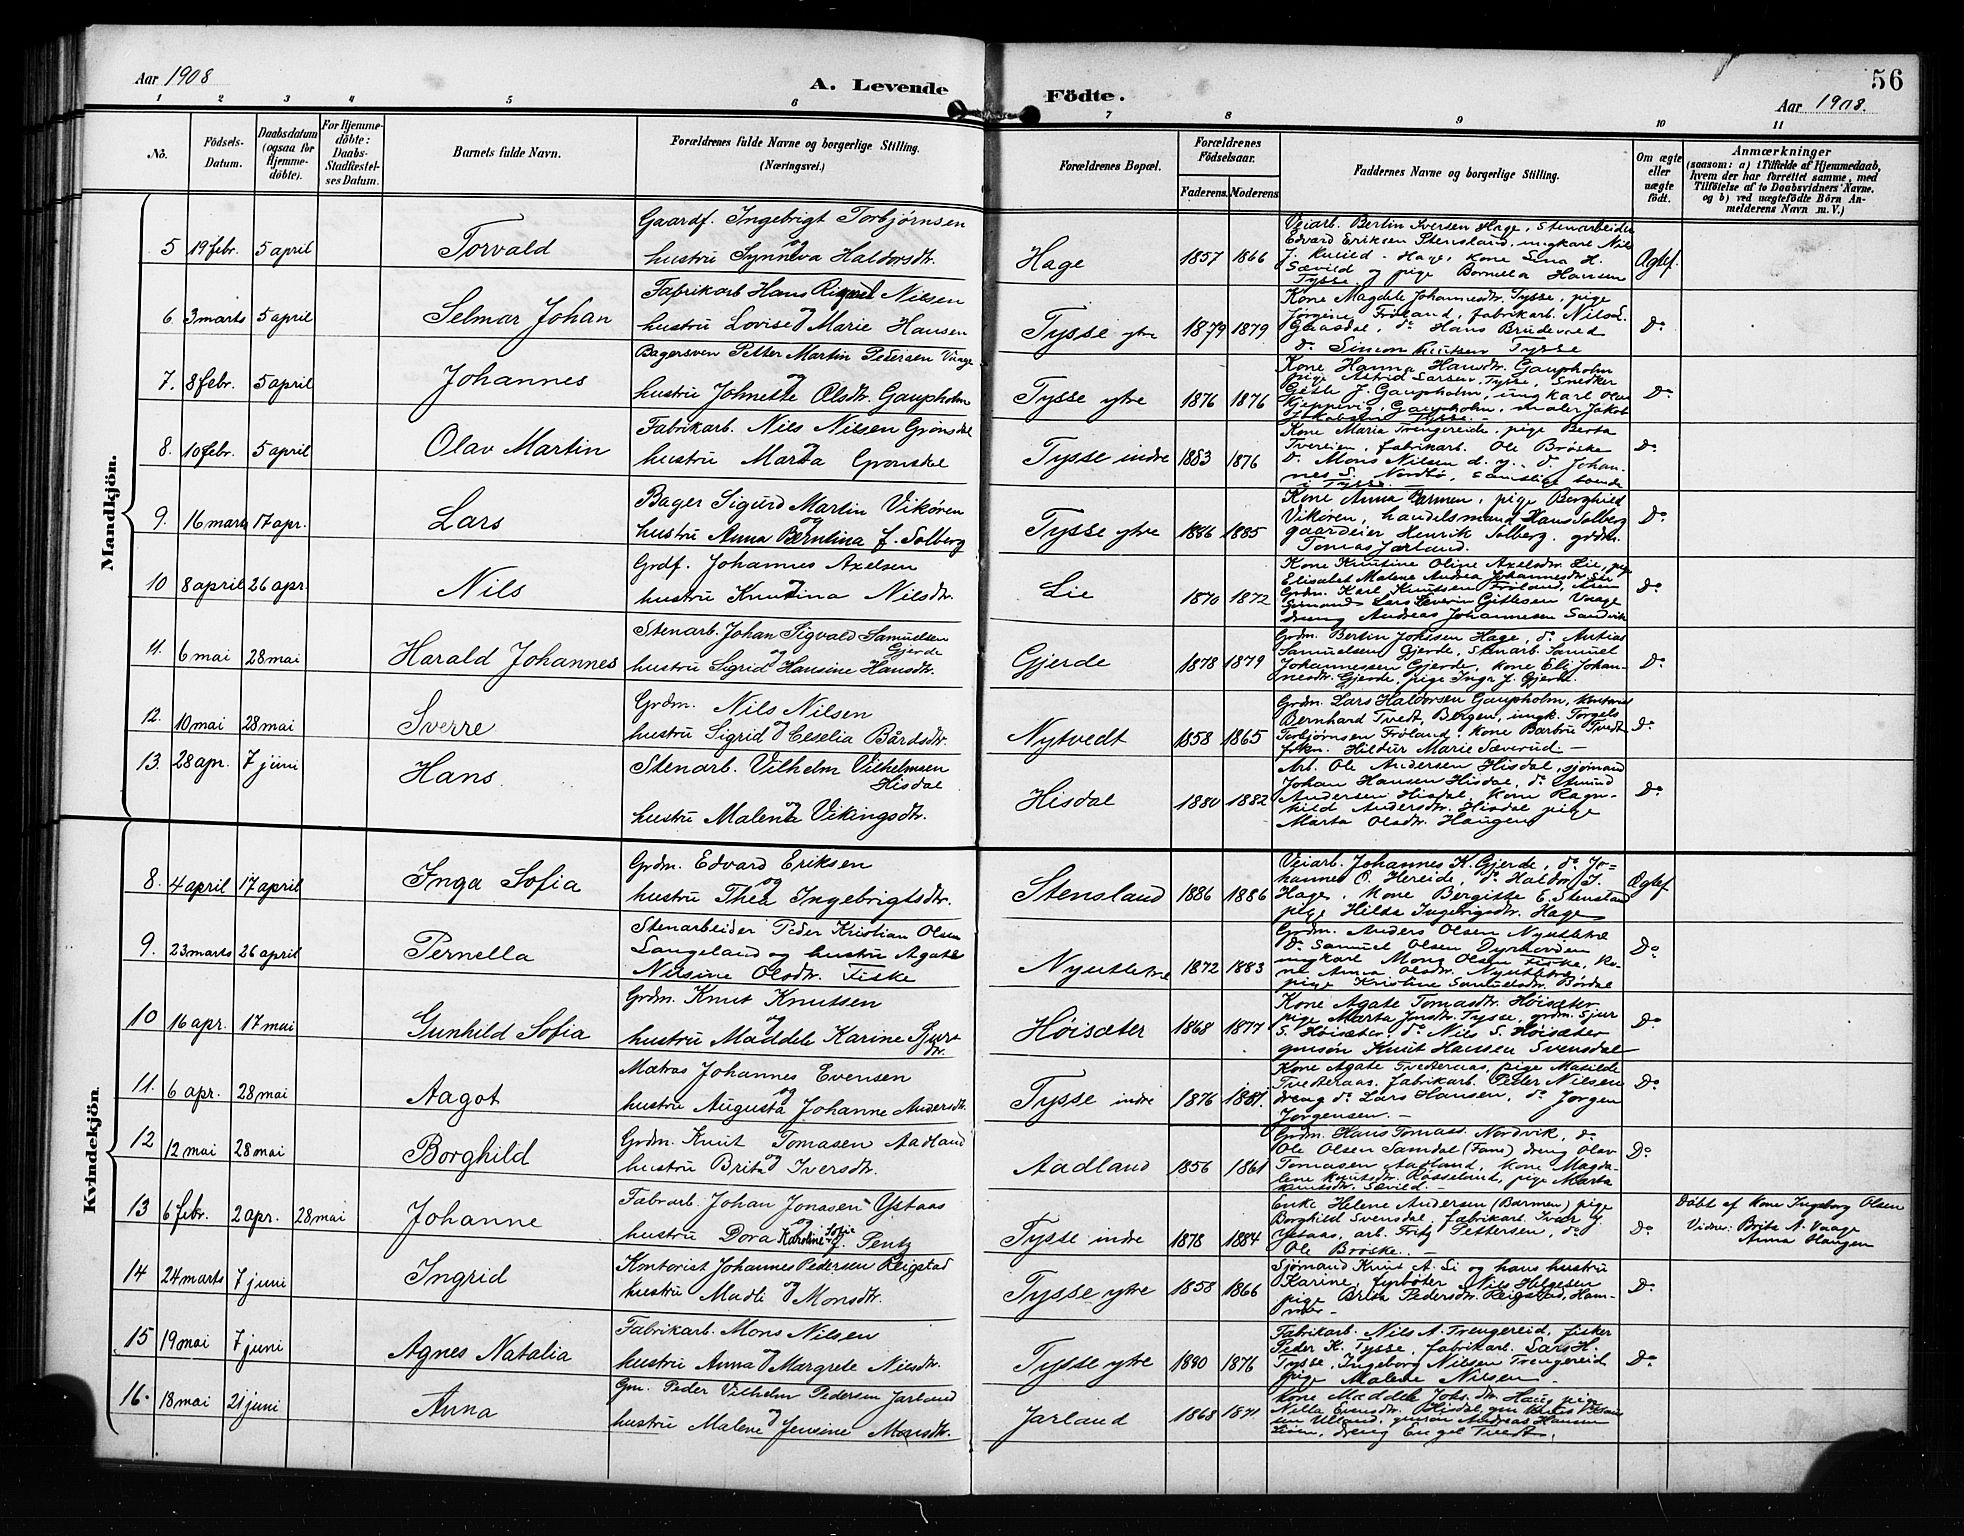 Aar 1908
A. Levende Födte.
56
Aar 1908.
1 2 3 4 5 6 7 8 9 10 11
No.
Födsels-Datum.
Daabsdatum (ogsaa for Hjemme-döbte).
For Hjemme-döbte: Daabs-Stadfæstel-ses Datum.
Barnets fulde Navn.
Forældrenes fulde Navne og borgerlige Stilling. (Næringsvei.)
Forældrenes Bopæl.
Forældrenes Födselsaar.
Faderens. Moderens
Faddernes Navne og borgerlige Stilling.
Om ægte eller uægte födt.
Anmærkninger
(saasom: a) i Tilfælde af Hjemmedaab, hvem der har forrettet samme, med Tilföielse af to Daabsvidners Navne. og b) ved uægtefödte Börn An-melderens Navn m. V.)
Mandkjön.
5 19 febr. 5 april Torvald
Gaardf. Ingebrigt Torbjørnsen
og
hustru Synneva Haldorsdtr.
Hage 1857 1866
Veiarb. Bertin Iversen Hage, Stenarbeider
Edvard Eriksen Stensland, ungkarl Nils
J. Hage, kone Sina H.
Sævild og pige Bornella Hansen
Tysse
Ægtef.
6. 3 marts 5 april Selmar Johan
Fabrikarb. Hans Nilsen
hustru Lovise Marie Hansen
Tysse ytre 1879 1879
Kone Magdele Johannesdtr. Tysse, pige
Jørgine Frøland, fabrikarb. Nils
Gaasdal, do Hans Brudevold
do Simon Knutsen Tysse
Do
7. 8 febr. 5 april Johannes
Bagersven Petter Martin Pedersen Vaage
og
hustru Johnette Olsdtr. Gaupholm
Tysse ytre 1876 1876
Kone Hanna Hansdtr. Gaupholm
pige Astrid Larsen, Tysse, Snedker
Gitle J. Gaupholm, ungkarl Olav
Gaupholm, maler Jakob
Jakobsen Tysse
Do
8. 10 febr. 5 april Olav Martin
Fabrikarb. Nils Nilsen Grønsdal
hustru Marta Grønsdal
Tysse indre 1883 1876
Kone Maria Trengereide, pige Berta
Tvereien, fabrikarb. Ole Brøske
do Mons Nilsen d. y. do Johan-
nes S. Nordbø, samtlige boende
i Tysse
Do
9. 16 marts 17 apr. Lars
Bager Sigurd Martin Vikøren
og
hustru Anna Berntina f. Solberg
Tysse ytre 1886 1885
Kone Anna Barmen, pige Borghild
Vikøren, handelsmand Hans Solberg
gaardeier Henrik Solberg, grdm.
Tomas Jarland.
Do
10 8 april 26 apr. Nils
Grdf. Johannes Axelsen
hustru Knutina Nilsdtr.
Lie 1870 1872
Kone Knutine Oline Axelsdtr. Lie, pige
Elisabet Malene Andrea Johannesdtr. Lie
Grdm. Karl Knutsen Frøland,
Lars Severin Gitlesen Vaage
dreng Andreas Johannesen Sandvik
Do
11. 6 mai 28 mai Harald Johannes
Stenarb. Johan Sigvald Samuelsen
Gjerde
og
hustru Sigrid Hansine Hansdtr.
Gjerde 1878 1879
Grdm. Bertin Johnsen Hage, do Antias
Samuelsen Gjerde, stenarb. Samuel
Johannessen Gjerde, kone Eli Johan-
nesdtr. Gjerde, pige Inga J. Gjerde.
Do
12. 10 mai 28 mai Sverre
Grdm. Nils Nilsen
hustru Sigrid Ceselia Bårdsdtr.
Nytvedt 1858 1865
Grdm. Lars Haldorsen Gaupholm,
Bernhard Tvedt, Bergen, ungk. Torgels
Torbjørnsen Frøland, kone Barbru Tvedt
frkn. Hildur Marie Sæverud. —
Do
13. 28 apr. 7 juni Hans
Stenarb. Vilhelm Vilhelmsen
Hisdal
og
hustru Malene Vikingsdtr.
Hisdal 1880 1882
Arb. Ole Andersen Hisdal, sjømand
Johan Hansen Hisdal, do Amund
Andersen Hisdal, kone Ragn-
hild Andersdtr. Hisdal, pige
Marta Olsdtr. Haugen
Do
Kvindekjön.
8. 4 april 17 april Inga Sofia
Grdm. Edvard Eriksen
og
hustru Thea Ingebrigtsdtr.
Stensland 1886 1886
Veiarb. Johannes K. Gjerde, do Jo-
hannes O. Hereide, do Haldor I.
Hage, kone Bergitte E. Stensland
pige Hilda Ingebrigsdtr. Hage
Ægtef.
9. 23 marts 26 april Pernella
Stenarbeider Peder Kristian Olsen
Langeland og hustru Agate
Nilsine Olsdtr. Fiske
1872 1883
Grdm. Anders Olsen
do Samuel Olsen Dyrhovden
ungkarl Mons Olsen Fiske, ko-
ne Anna Olsdtr.
pige Kristine Samuelsdtr. Børdal
Do
10 16 apr. 17 mai Gunhild Sofia
Grdm. Knut Knutsen
og
hustru Maddele Karine Sjurs
dtr.
Høisæter 1868 1877
Kone Agate Tomasdtr. Høisæter
pige Marta Jonsdtr. Tysse, grdm. Sjur
S. Høisæter, do Nils S. Høisæter
gmsøn Knut Hansen Svensdal
Do
11. 6 apr. 28 mai Aagot
Matros Johannes Evensen
og
hustru Augusta Johanne Andersdtr.
Tysse indre 1876 1881.
Kone Agate Tvedteraas, pige Matilde
Tvedteraas, fabrikarb. Peder Nilsen
dreng do Lars Hansen, do Jørgen
Jørgensen. —
Do
12 12 mai 28 mai Borghild
Grdm. Knut Tomasen Aadland
og
hustru Brita Iversdtr.
Aadland 1856 1861
Grdm. Hans Tomass. Nordvik, do
Ole Olsen Samdal (Fane) dreng Olav
Tomasen Aadland, kone Magda-
lene Knutsdtr. Røsseland, pige Marta
Knutsdtr. Sævild. —
Do
13 6 febr. 2 apr. 28 mai Johanne
Fabrarb. Johan Jonasen Ystaas
og
hustru Dora Karoline Sofie f. Pentz
Tysse indre 1878 1884
Enke Helene Andersen (Barmen) pige
Borghild Svensdal, fabrikarb. Ivar J.
Ystaas, arb. Fritz Pettersen, do
Ole Brøske. —
Do
Døbt af kone Ingeborg Olsen
Vidner: Brita A. Vaage
Anna Haugen
14 24 marts 7 juni Ingrid
Kontorist Johannes Pedersen Reigstad
hustru Madli Monsdtr.
Tysse ytre 1858 1866
Sjømand Knut A. Li og hans hustru
Karine, fyrbøter Nils Helgesen
pige Brita Pedersdtr. Reigstad, Ham-
mer —
Do
15 19 mai 7 juni Agnes Natalia
Fabrikarb. Mons Nilsen
hustru Anna Margrete Nilsdtr.
Tysse ytre 1880 1876
Fabrikarb. Nils A. Trengereid, fisker
Peder K. Tysse, fabrikarb. Lars H.
Tysse, Ingeborg Nilsen Trengereid
pige Malene Nilsen —
Do
16. 18 mai 21 juni Anna
Gm. Peder Vilhelm Pedersen Jarland
hustru Malene Jensine Monsdtr.
Jarland 1868 1871
Kone Maddele Johs.dtr. Haug, pige
Nilla Evensdtr. Hisdal, gm
Ulland, gmsøn Andreas Hansen
dreng Engel Tvedt.